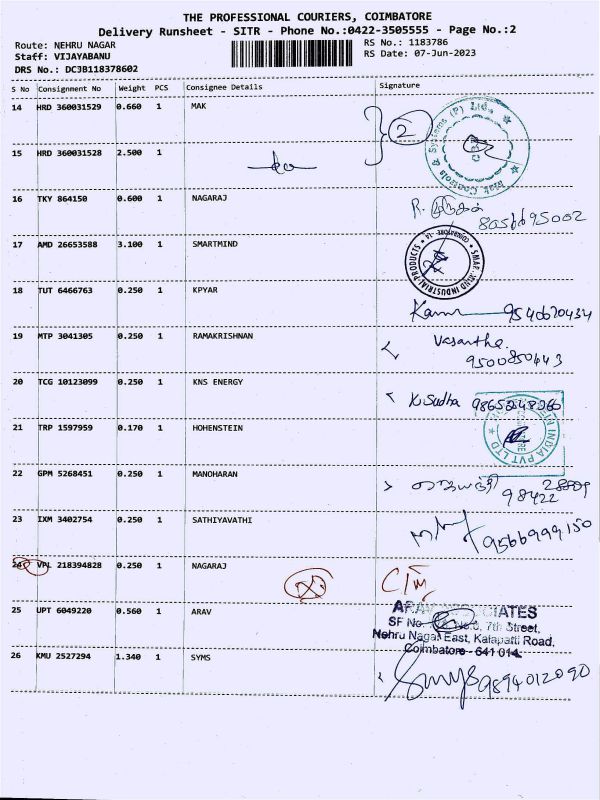 THE PROFESSIONAL COURIERS, COIMBATORE
Delivery Runsheet - SITR - Phone No.:0422-3505555 - Page No.:2
Route: NEHRU NAGAR
Staff: VIJAYABANU
DRS No.: DCJB118378602
RS No.: 1183786
RS Date: 07-Jun-2023
S No Consignment No Weight PCS Consignee Details Signature
14 HRD 360031529 0.660 1 MAK
2
Systems (P) Ltd.,
Mak Controls
15 HRD 360031528 2.500 1
16 TKY 864150 0.600 1 NAGARAJ
8056695002
17 AMD 26653588 3.100 1 SMARTMIND
INDUSTRIAL PRODUCTS
18 TUT 6466763 0.250 1 KPYAR
9540670434
19 MTP 3041305 0.250 1 RAMAKRISHNAN
Vasantha
9500850443
20 TCG 10123099 0.250 1 KNS ENERGY
K Sudha
21 TRP 1597959 0.170 1 HOHENSTEIN
INDIA PVT LTD
22 GPM 5268451 0.250 1 MANOHARAN
98422
23 IXM 3402754 0.250 1 SATHIYAVATHI
9566999150
24 VPL 218394828 0.250 1 NAGARAJ
25 UPT 6049220 0.560 1 ARAV
Nehru Nagar East, Kalapatti Road,
Coimbatore - 641 014.
26 KMU 2527294 1.340 1 SYMS
Syms 9894012090